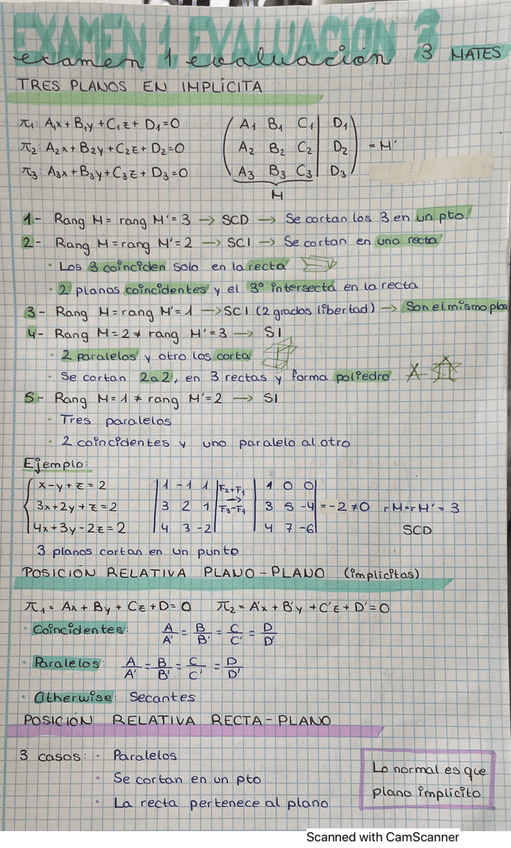 EXAMEN 1 EVALUACIÓN 3
examen 1 evaluación 3 MATES
TRES PLANOS EN IMPLÍCITA
π₁: A₁x + B₁y + C₁z + D₁ = 0
π₂: A₂x + B₂y + C₂z + D₂ = 0
π₃: A₃x + B₃y + C₃z + D₃ = 0
( A₁ B₁ C₁ | D₁ )
( A₂ B₂ C₂ | D₂ ) = M'
( A₃ B₃ C₃ | D₃ )
M
1- Rang M = rang M' = 3 → SCD → Se cortan los 3 en un pto.
2- Rang M = rang M' = 2 → SCI → Se cortan en una recta
· Los 3 coinciden solo en la recta
· 2 planos coincidentes y el 3º intersecta en la recta
3- Rang M = rang M' = 1 → SCI (2 grados libertad) → Son el mismo plano
4- Rang M = 2 ≠ rang M' = 3 → SI
· 2 paralelos y otro los corta
· Se cortan 2 a 2, en 3 rectas y forma poliedro
5- Rang M = 1 ≠ rang M' = 2 → SI
· Tres paralelos
· 2 coincidentes y uno paralelo al otro
Ejemplo:
{ x - y + z = 2
{ 3x + 2y + z = 2
{ 4x + 3y - 2z = 2
| 1 -1 1 | F₂+F₁ | 1 0 0 |
| 3 2 1 | → | 3 5 -4 | = -2 ≠ 0 rM = rM' = 3
| 4 3 -2 | F₃-F₁ | 4 7 -6 | SCD
3 planos cortan en un punto
POSICIÓN RELATIVA PLANO-PLANO (implícitas)
π₁ = Ax + By + Cz + D = 0 π₂ = A'x + B'y + C'z + D' = 0
· Coincidentes: A/A' = B/B' = C/C' = D/D'
· Paralelos: A/A' = B/B' = C/C' = D/D'
· Otherwise: Secantes
POSICIÓN RELATIVA RECTA-PLANO
3 casos: · Paralelos
· Se cortan en un pto
· La recta pertenece al plano
Lo normal es que
plano implícito
Scanned with CamScanner